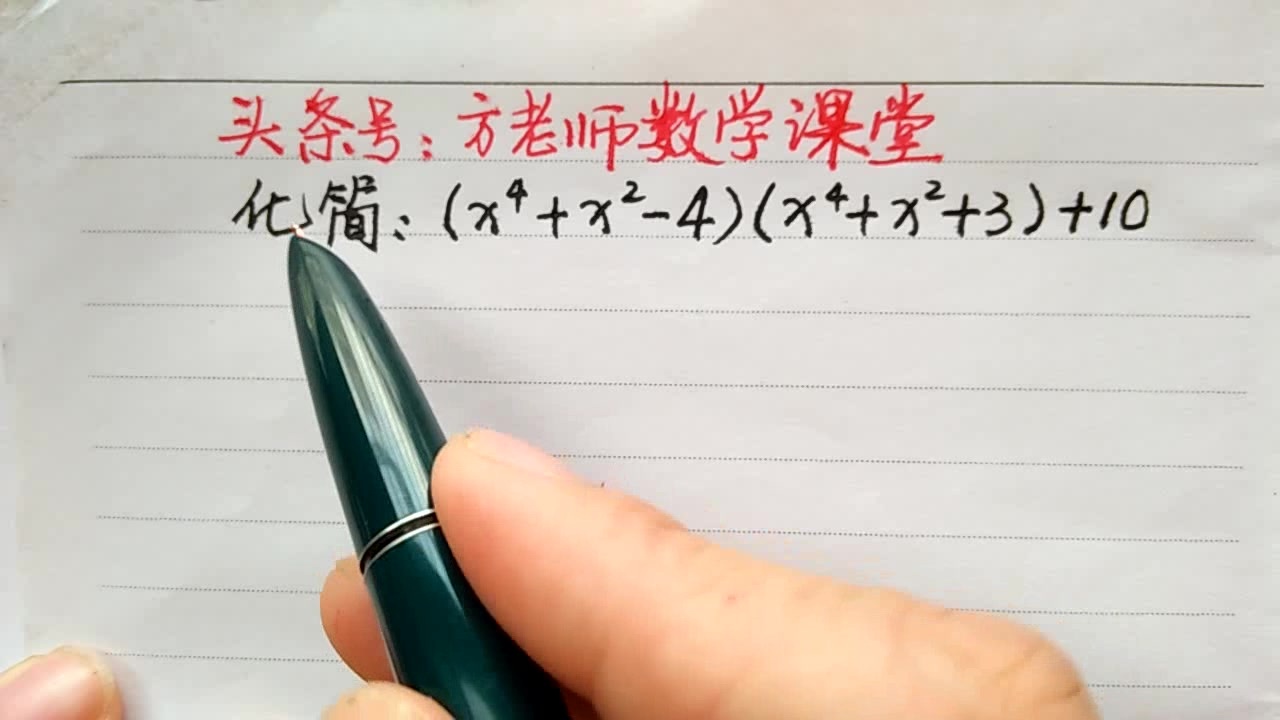 头条号：方老师数学课堂
化简：(x⁴+x²-4)(x⁴+x²+3)+10